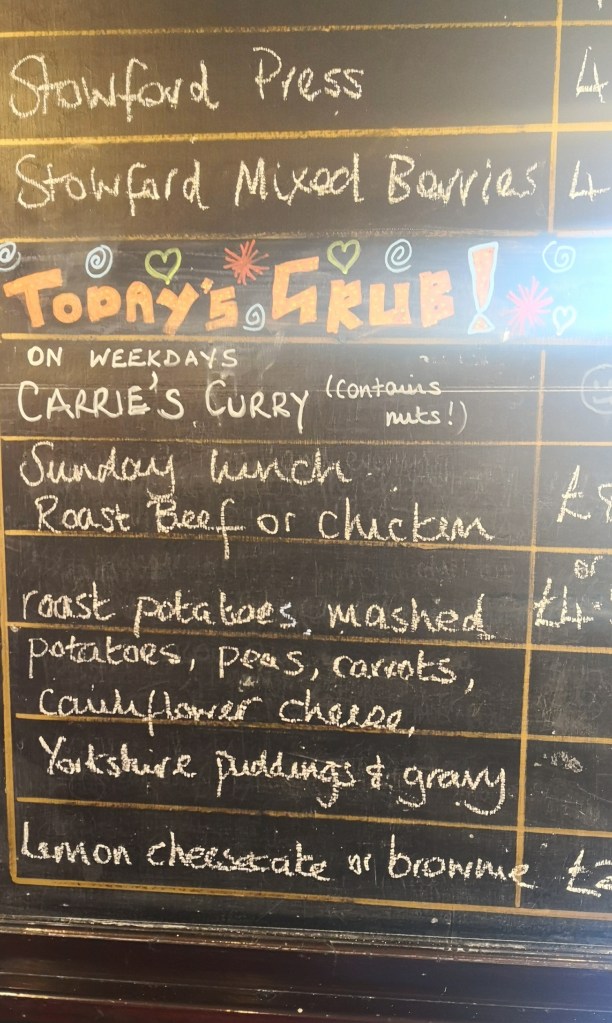 Stowford Press 4
Stowford Mixed Berries 4
TODAY'S GRUB!
ON WEEKDAYS
CARRIE'S CURRY (contains nuts!)
Sunday lunch
Roast Beef or chicken £8
or
roast potatoes, mashed £4
potatoes, peas, carrots,
cauliflower cheese,
Yorkshire puddings & gravy
Lemon cheesecake or brownie £2